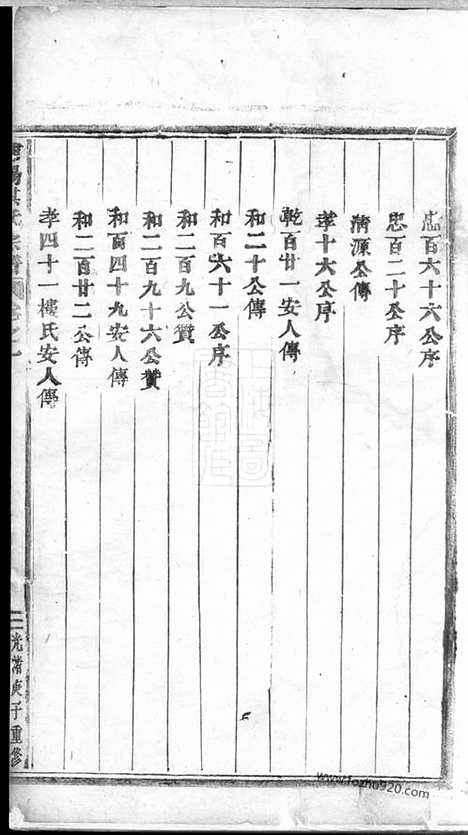 忠百六十六公序
忠百二十公序
清源公傳
孝十六公序
乾百廿一安人傳
和二十公傳
和百六十一公序
和二百九公贊
和二百九十六公贊
和百四十九安人傳
和二百廿二公傳
孝四十一樓氏安人傳
氏宗譜
卷之一
二
光緒庚子重修
www.fozhu920.com